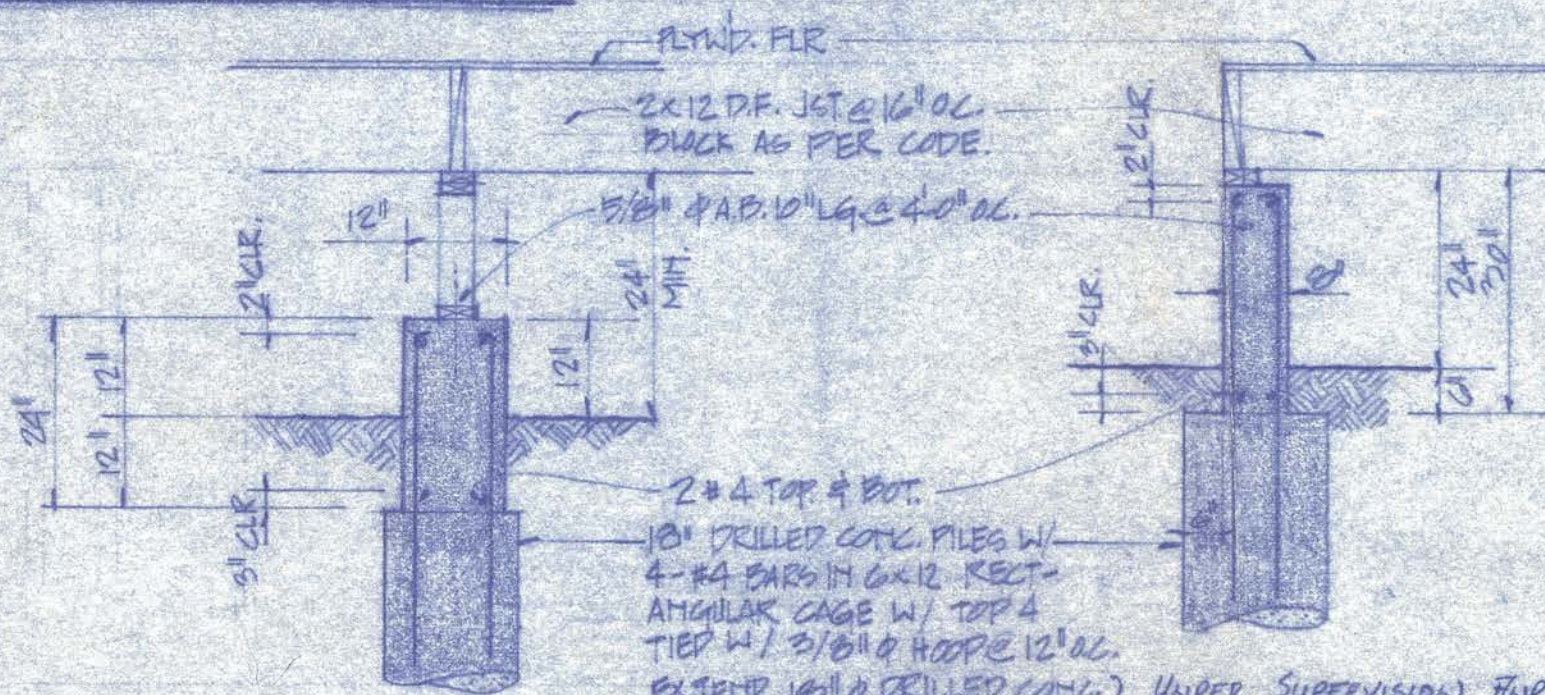 PLYWD. FLR
2x12 D.F. JST. @ 16" O.C.
BLOCK AS PER CODE.
5/8" φ A.B. 10" LG. @ 4'-0" O.C.
12"
2" CLR.
24"
MIN.
12"
12"
24"
12"
3" CLR
2" CLR.
8"
24"
30"
3" CLR.
6"
2 #4 TOP & BOT.
18" DRILLED CONC. PILES W/
4-#4 BARS IN 6x12 RECT-
ANGULAR CAGE W/ TOP 4
TIED W/ 3/8" φ HOOP @ 12" O.C.
EXTEND 18" φ DRILLED CONC.) UNDER SUPERVISION